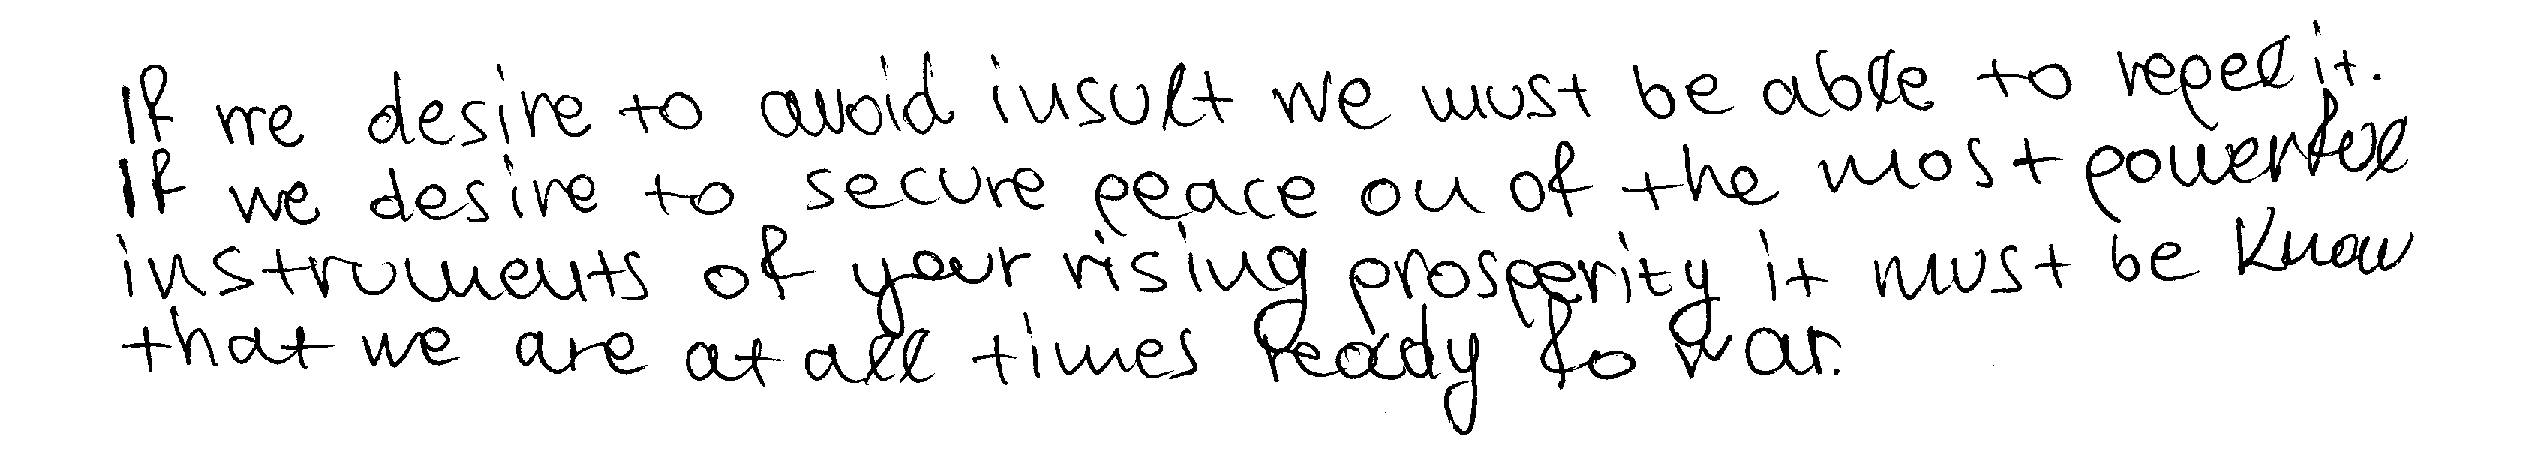 If we desire to avoid insult we must be able to repel it.
If we desire to secure peace on of the most powerful
instruments of your rising prosperity it must be know
that we are at all times ready fo war.